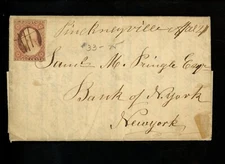 Pinckneyville
#33-
Saml M. Pringle Esqr
Bank of N.York
Newyork